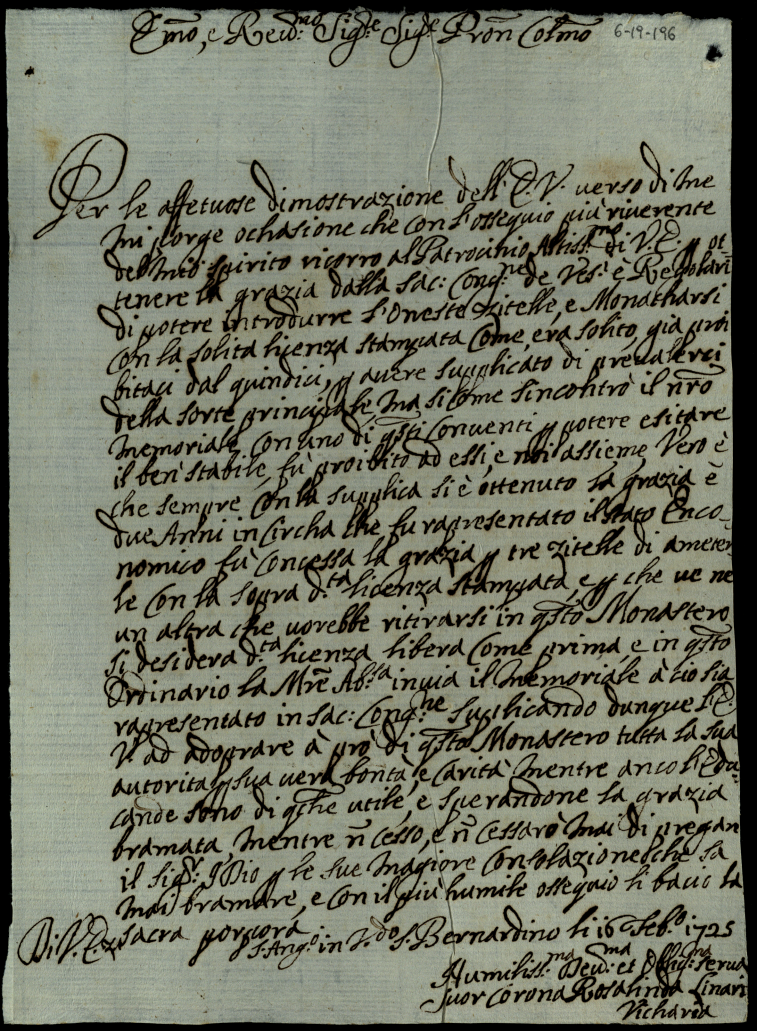 Emo, e Reud:mo Sigr.e Sigr.e Pron Colmo
6-19-196
Per le affetuose dimostrazione dell' E.V. verso di me
mi porge ochasione che con l'ossequio più riverente
del mio spirito ricorro al Patrocinio Altiss.mo di V.E. p ot=
tenere la grazia dalla Sac: Cong.ne de Ves.i è Regolari
di potere introdurre l'Oneste Zitelle, e Monacharsi
con la solita licenza stampata Come, era solito, già proi
bitaci dal quindici, p avere supplicato di prevalerci
della sorte principale, ma si come s'incontrò il nro
Memoriale con uno di qsti Conventi p potere esitare
il ben stabile, fù proibito ad essi, e noi assieme, Vero è
che sempre con la supplica si è ottenuto la grazia è
due Anni in Circha che fu rapresentato il stato Enco=
nomico fù concessa la grazia p tre zitelle di ameter
le con la sopra d.ta licenza stampata, e p che ve ne
un altra che vorebbe ritirarsi in qsto Monastero
si desidera d.ta licenza libera Come prima, e in qsto
Ordinario la Mre Ab.sa invia il Memoriale à cio sia
rapresentato in Sac: Cong.ne supplicando dunque l'E.
V. ad adoprare à prò di qsto Monastero tutta la sua
autorità p sua vera bontà, e carità mentre anco l'Edu=
cande sono di qche utile, e sperandone la grazia
bramata mentre ñ cesso, e ñ cessarò mai di pregar
il Sigr. Idio p le sue magiore consolazione che sa
mai bramare, e con il più humile ossequio li bacio la
Di V. E. sacra porpora
S. Ang.o in V.do S. Bernardino li 16 Feb.o 1725
Humiliss.ma Deu.ma et Obblig.ma serva
Suor Corona Rosalinda Linari
Vicharia